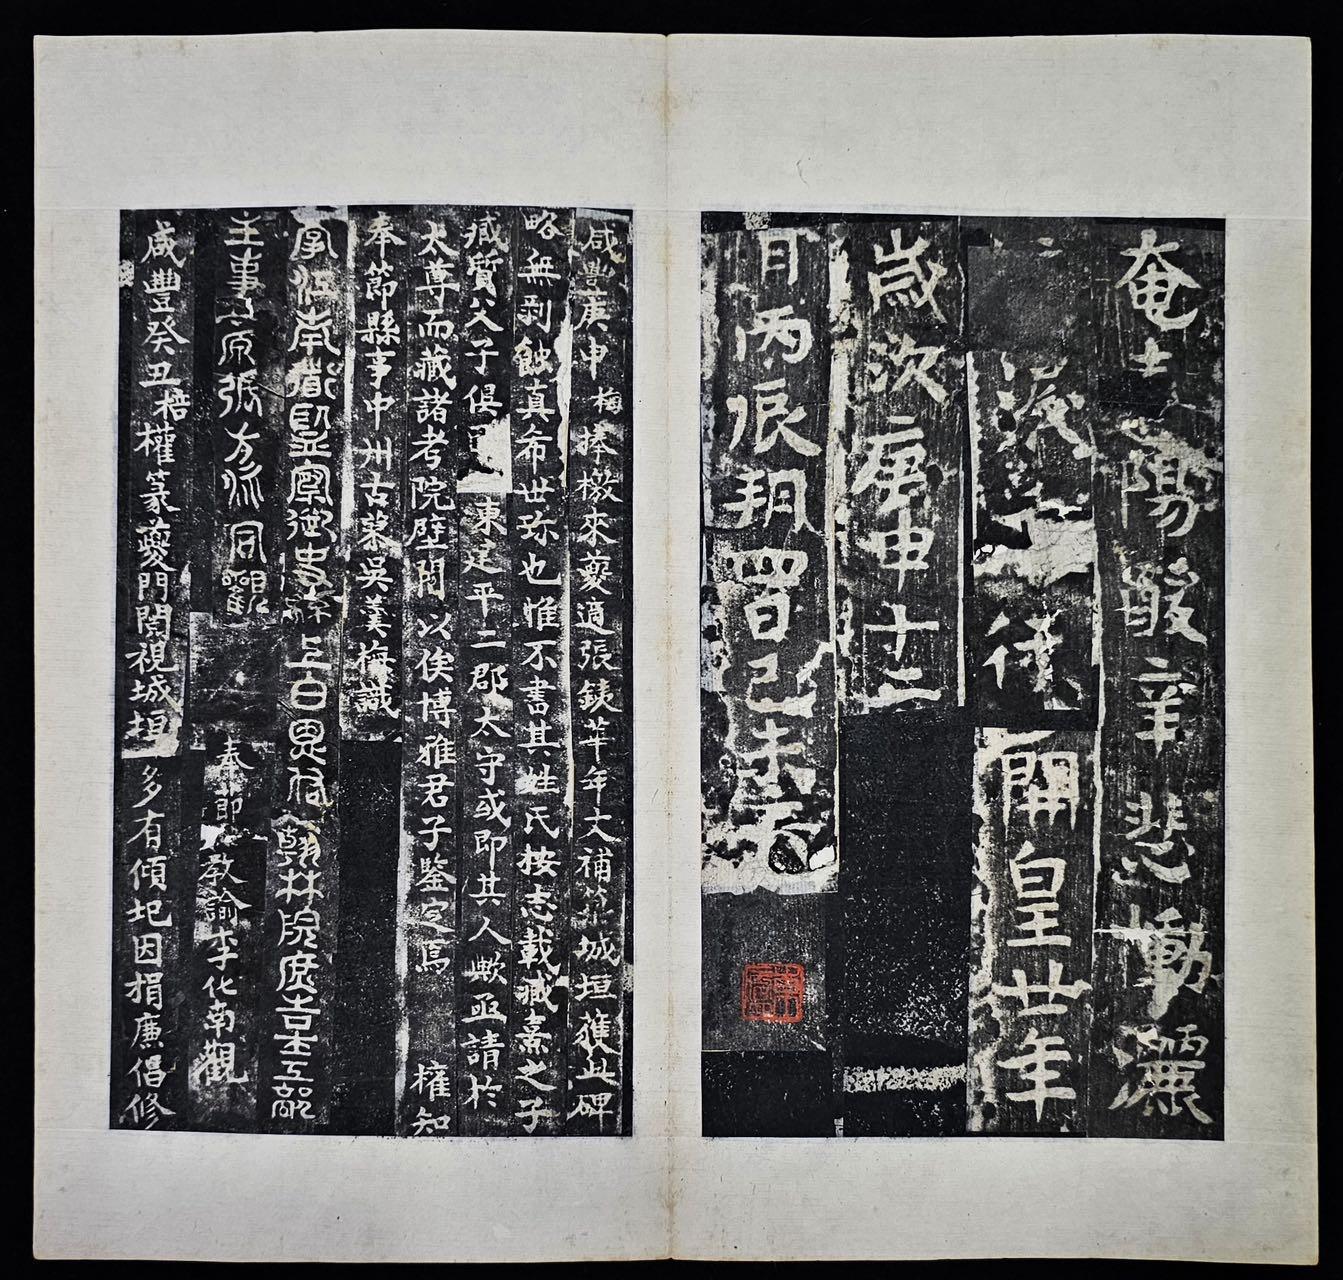 奄 陽 酸辛悲慟灑
淚 後 開皇廿年
歲次庚申十二
月丙辰朔四日己未
咸豐庚申梅捧檄來夔適張鉄華年大補築城垣獲此碑
略無剥蝕真希世珍也惟不書其姓氏按志載臧熹之子
臧質父子俱 東建平二郡太守或即其人歟亟請於
太尊而藏諸考院壁間以俟博雅君子鑒定焉 權知
奉節縣事中州古蔡吳羹梅識
掌江南道監察御史 翰林院庶吉士工部
主事 張 同觀 奉節教諭李化南觀
咸豐癸丑梧權篆夔門閱視城垣多有傾圮因捐廉倡修